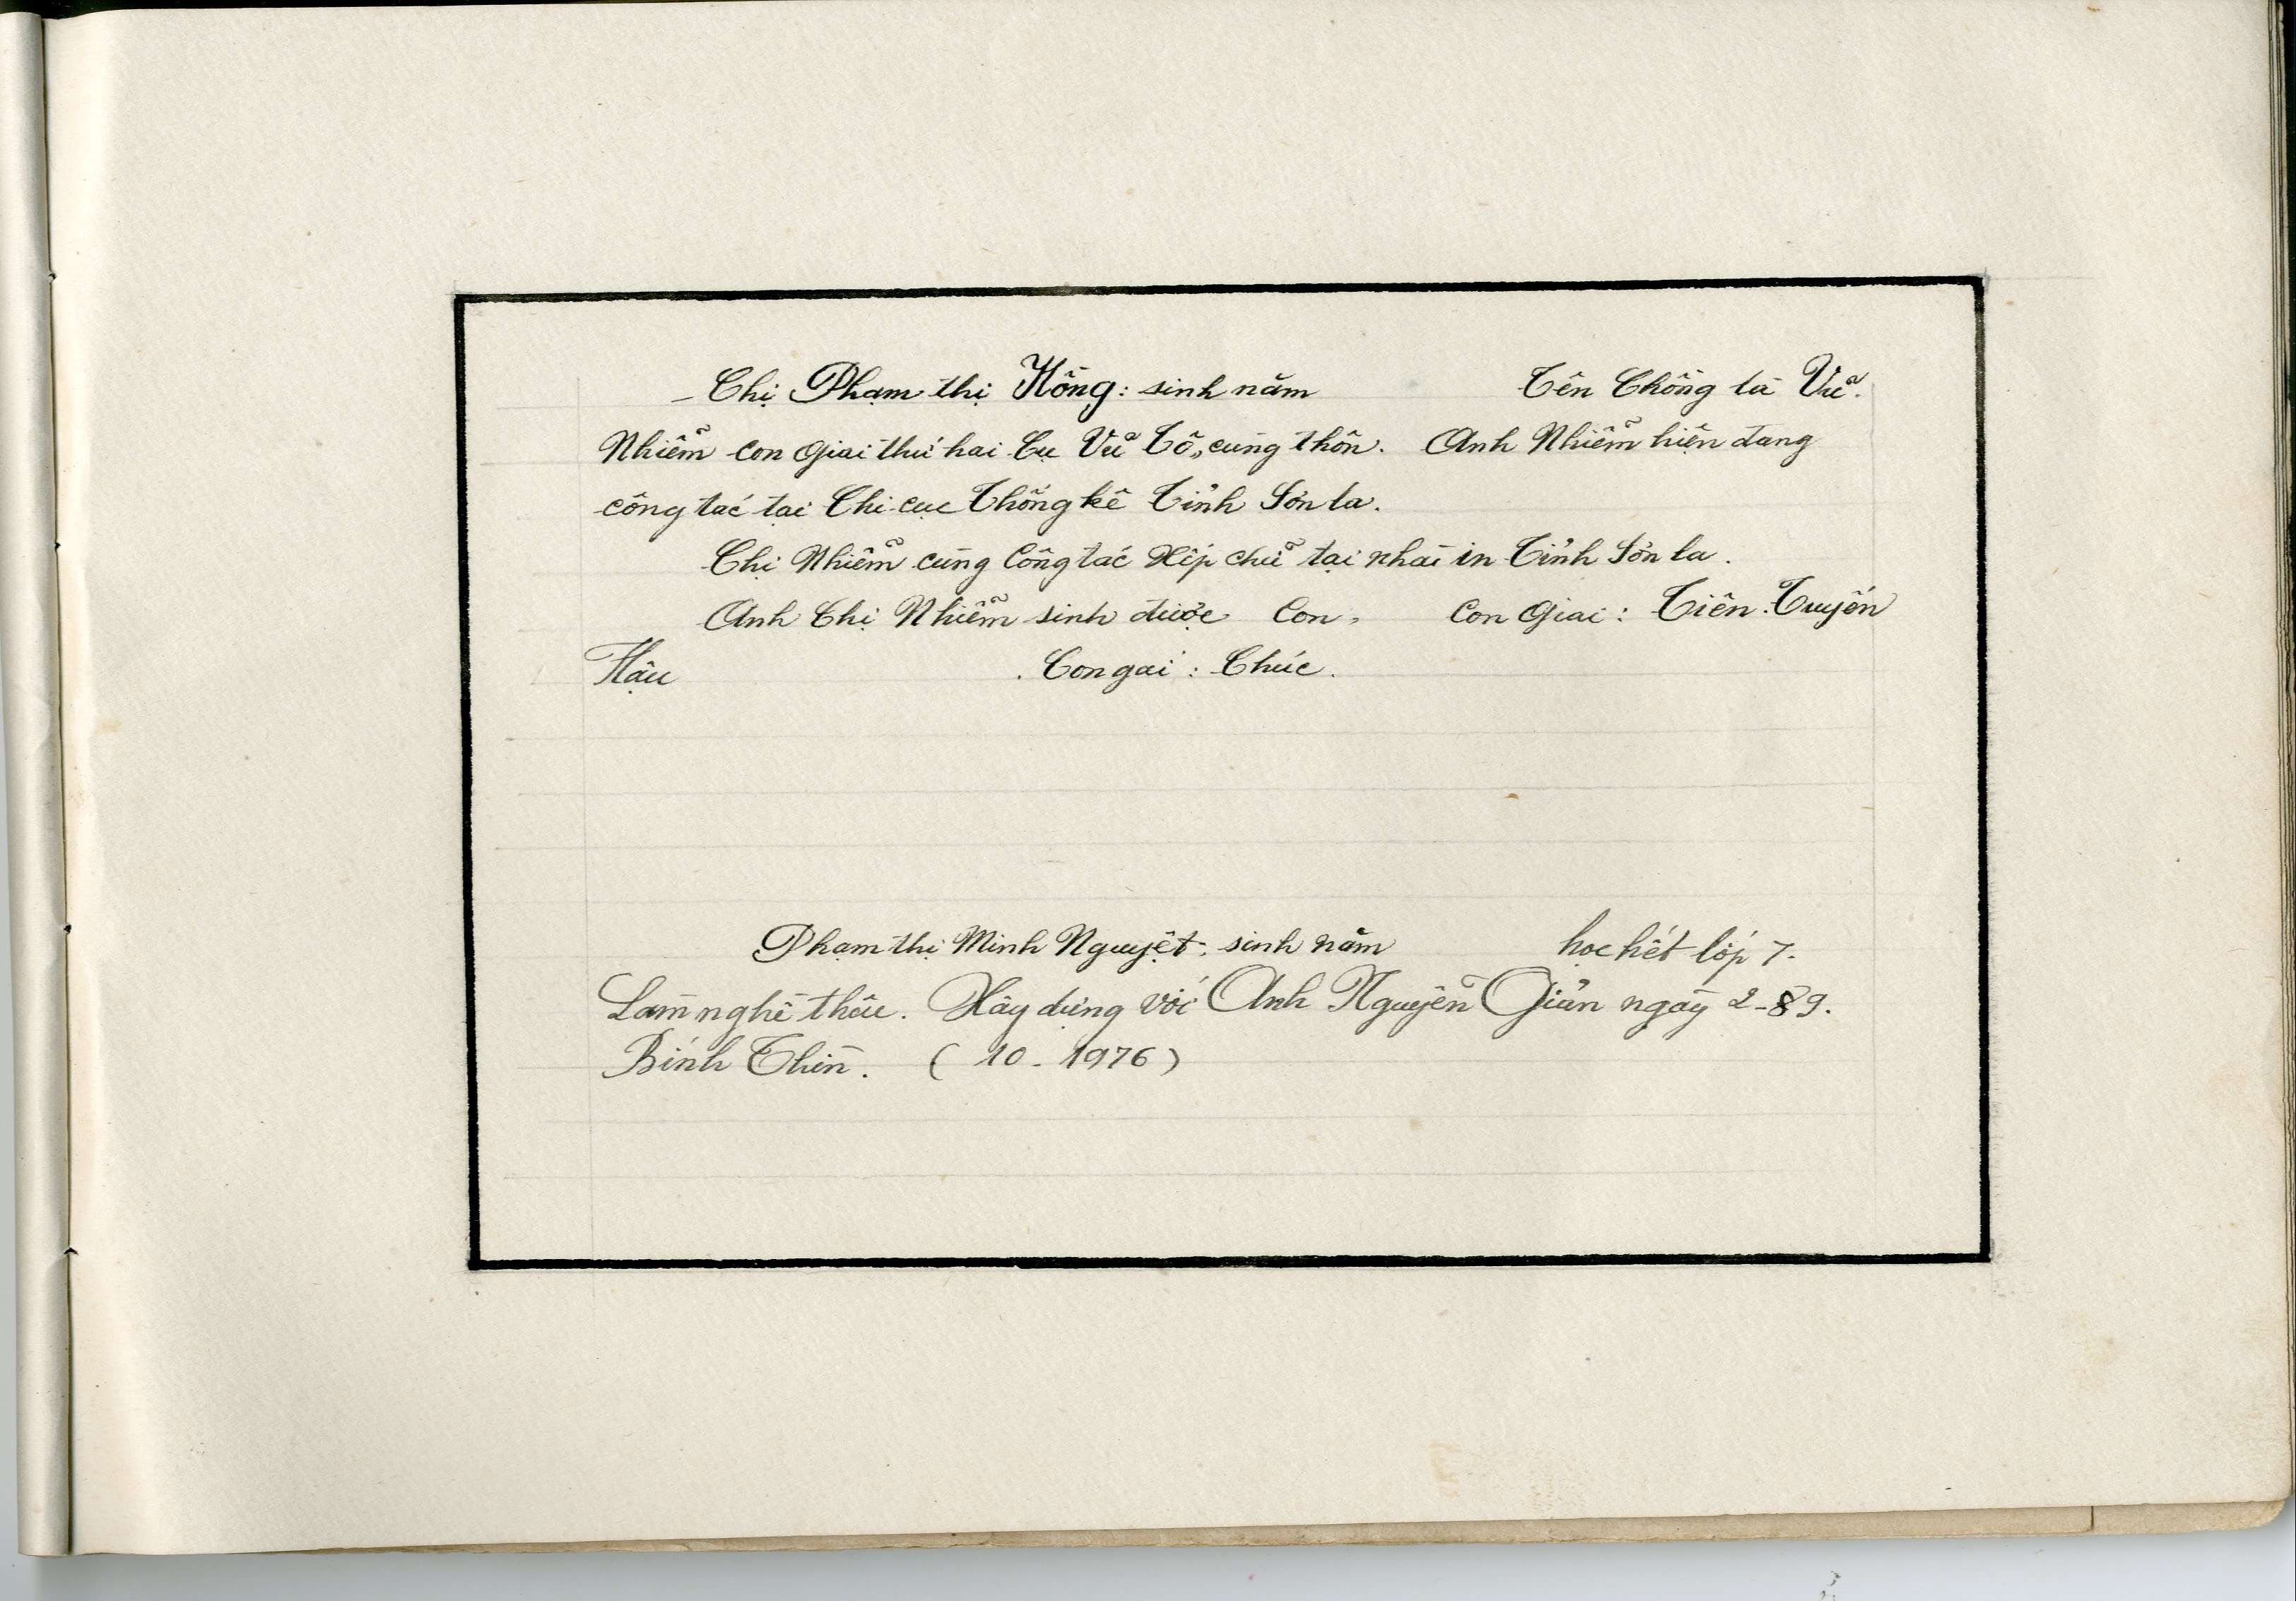 - Chị Phạm thị Hồng: sinh năm Tên Chồng là Vũ.
Nhiễm con Giai thứ hai Cụ Vũ Tô, cùng thôn. Anh Nhiễm hiện đang
công tác tại Chi cục Thống kê Tỉnh Sơn la.
Chị Nhiễm cũng Công tác Xếp chữ tại nhà in Tỉnh Sơn la.
Anh Chị Nhiễm sinh được Con, Con Giai: Tiên. Tuyến
Hậu . Con gái: Chúc.
Phạm thị Minh Nguyệt: sinh năm học hết lớp 7.
Làm nghề thêu. Xây dựng với Anh Nguyễn Giản ngày 2-89.
Bính Thìn. (10-1976)